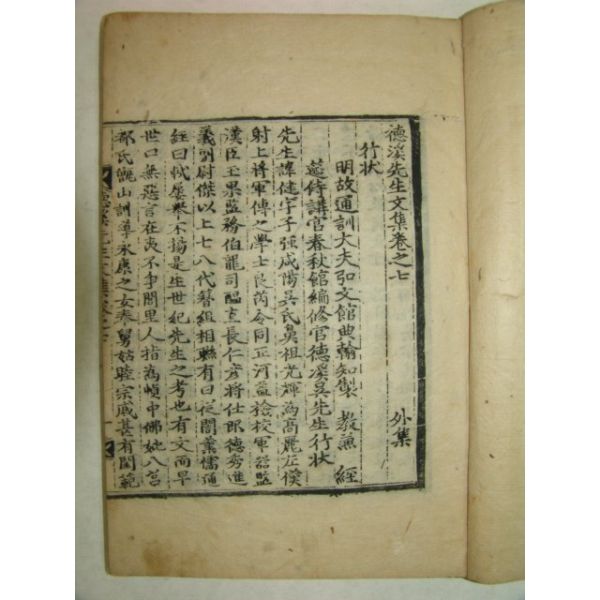 德溪先生文集卷之七 外集
行狀
明故通訓大夫弘文館典翰知製 教兼 經
筵侍講官春秋館編修官德溪吳先生行狀
先生諱健字子强咸陽吳氏鼻祖光輝為高麗左僕
射上將軍傳之學士良芮令同正河益檢校軍器監
漢臣玉果監務伯龍司醞直長仁彦將仕郎德秀進
義副尉傑以上七八代簪組相聯有曰從誾業儒通
經曰軾屢擧不揚是生世紀先生之考也有文而早
世口無惡言在衷不爭閭里人指為幘中佛妣八莒
都氏鸕山訓導永康之女奉舅姑睦宗戚甚有閫範
德溪先生文集卷之七